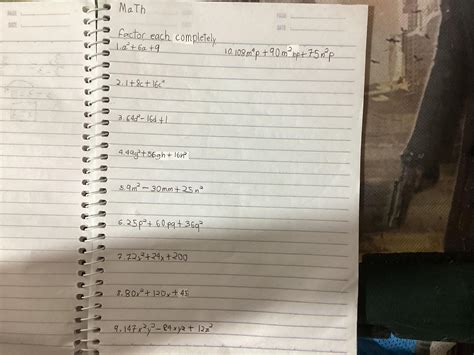 MaTh
factor each completely
1. a² + 6a + 9
10. 108m⁴p + 90m²np + 75n²p
2. 1 + 8c + 16c²
3. 64d² - 16d + 1
4. 49g² + 56gh + 16h²
5. 9m² - 30mn + 25n²
6. 25p² + 60pq + 36q²
7. 72x² + 24x + 200
8. 80x² + 120x + 45
9. 147x²y² - 84xyz + 12z²